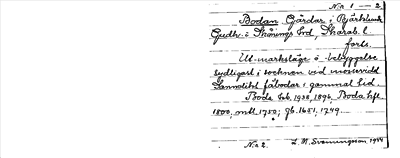 N:r 1 — 2.
Bodan Gårdar i Bjärklunda
Gudh. o Skånings hd, Skarab. l.
forts.
Ut-marksläge o bebyggelse
sydligast i socknen vid
Sannolikt fäbodar i gammal tid.
Boda 1938, 1896, Boda
1800, mtl. 1750; jb. 1651, 1749.
N:r 2. L. M. Svenungsson 1944